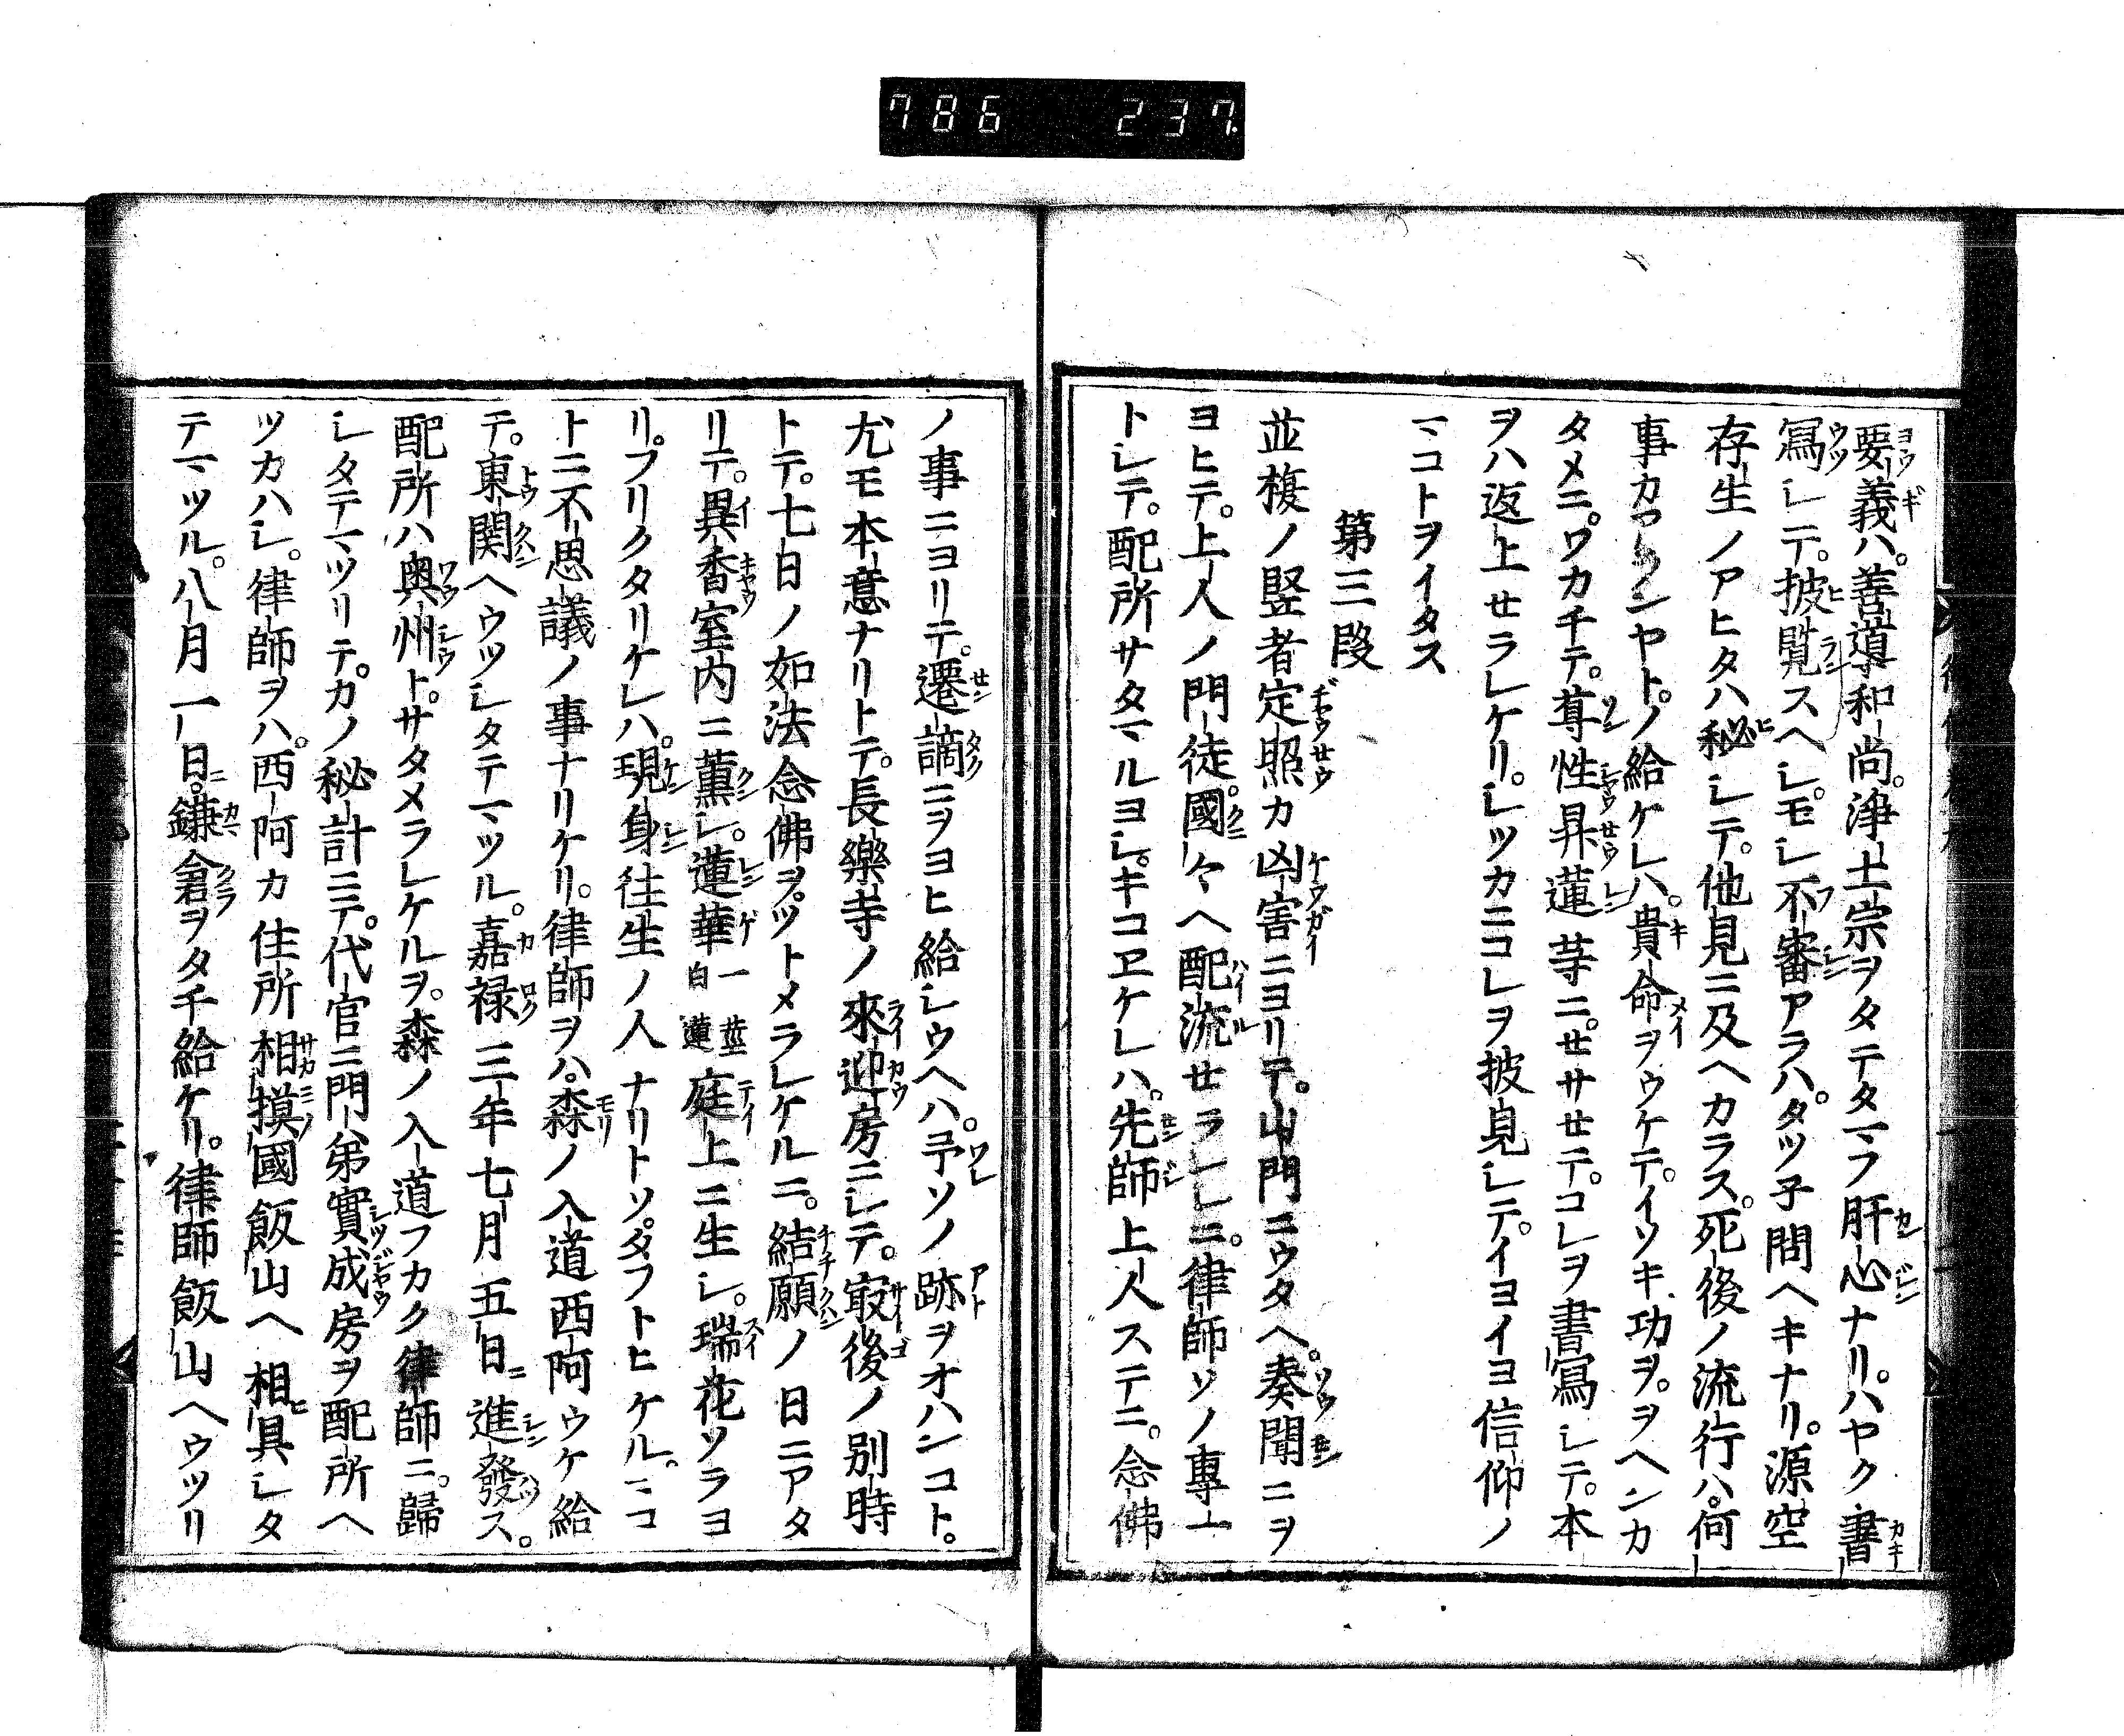 786 237
要義ハ。善導和尚。浄土宗ヲタテタマフ肝心ナリ。ハヤク書
寫シテ。披覧スヘシ。モシ不審アラハ。タツ子問ヘキナリ。源空
存生ノアヒタハ秘シテ。他見ニ及ヘカラス。死後ノ流行ハ。何
事カアランヤト。ノ給ケレハ。貴命ヲウケテ。イソキ功ヲ。ヲヘンカ
タメニ。ワカチテ。尊性昇蓮等ニ。セサセテ。コレヲ書寫シテ。本
ヲハ返上セラレケリ。シツカニコレヲ披見シテ。イヨイヨ信仰ノ
マコトヲイタス
第三段
並榎ノ竪者定照カ凶害ニヨリテ。山門ニウタヘ。奏聞ニヲ
ヨヒテ。上人ノ門徒。國々ヘ配流セラレシニ。律師ソノ専一
トシテ。配所サタマルヨシ。キコヱケレハ。先師上人ステニ。念佛
ノ事ニヨリテ。遷謫ニヲヨヒ給シウヘハ。予ソノ跡ヲオハンコト。
尤モ本意ナリトテ。長樂寺ノ來迎房ニシテ。㝡後ノ別時
トテ。七日ノ如法念佛ヲ。ツトメラレケルニ。結願ノ日ニアタ
リテ。異香室内ニ薫シ。蓮華一莖白蓮庭上ニ生シ。瑞花ソラヨ
リ。フリクタリケレハ。現身往生ノ人ナリトソ。タフトヒケル。マコ
トニ不思議ノ事ナリケリ。律師ヲハ。森ノ入道西阿ウケ給
テ。東関ヘウツシタテマツル。嘉禄三年七月五日進發ス。
配所ハ奥州ト。サタメラレケルヲ。森ノ入道フカク律師ニ。歸
シタテマツリテ。カノ秘計ニテ。代官ニ門弟實成房ヲ配所ヘ
ツカハシ。律師ヲハ。西阿カ住所相摸國飯山ヘ相具シタ
テマツル。八月一日。鎌倉ヲタチ給ケリ。律師飯山ヘウツリ